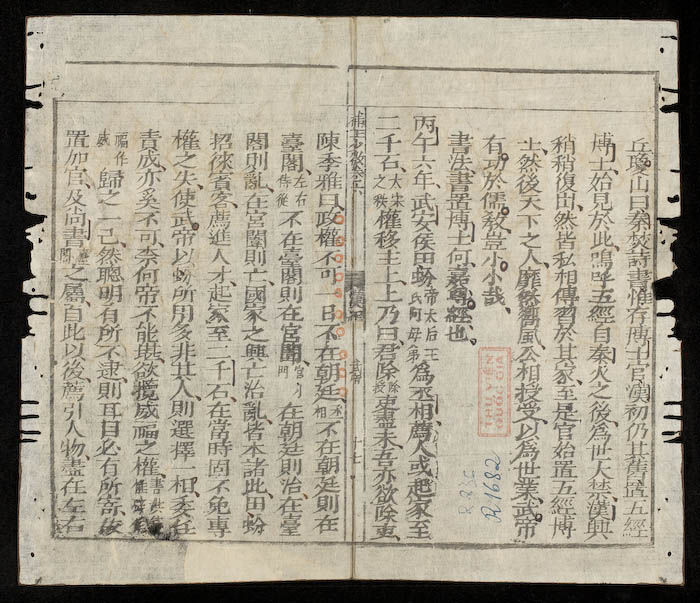 丘瓊山曰秦焚詩書惟存博士官漢初仍其舊置五經
博士始見於此嗚呼五經自秦火之後為世大禁漢興
稍稍復出然皆私相傳習於其家至是官始置五經博
士然後天下之人靡然嚮風公相授受以為世業武帝
有功於儒教豈小小哉
書法書置博士何嘉尊經也
丙午六年武安侯田蚡帝太后王氏同母弟為丞相薦人或起家至
二千石太守之秩權移主上上乃曰君除除授吏盡未吾亦欲除吏
陳季雅曰政權不可一日不在朝廷丞相不在朝廷則在
臺閣左右侍從不在臺閣則在宮闈宮門在朝廷則治在臺
閣則亂在宮闈則亡國家之興亡治亂皆本諸此田蚡
招徠賓客薦進人才起家至二千石在當時固不免專
權之失使武帝以蚡所用多非其人則選擇一相委任
責成亦奚不可奈何帝不能堪欲攬威福之權
福作威歸之一己然聰明有所不逮則耳目必有所寄故
置加官及尚書之屬自此以後薦引人物盡在左右
武帝
十七
THƯ VIỆN
QUỐC GIA
R.1682